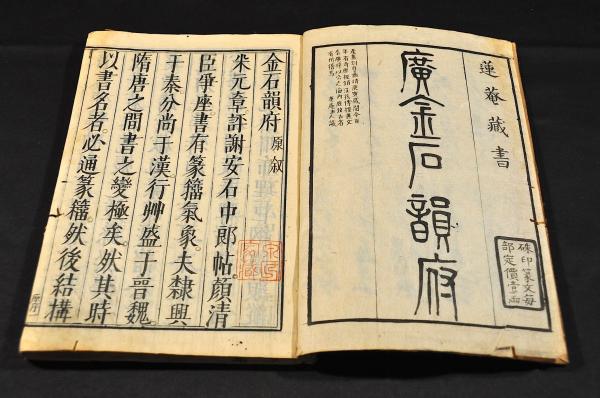 蓮菴藏書
廣金石韻府
硃印篆文每
部定價壹兩
金石韻府原叙
朱元章評謝安石中郎帖顏清
臣爭座書有篆籀氣象。夫隸興
于秦分尚于漢行艸盛于晉魏
隋唐之間書之變極矣然其時
以書名者必通篆籀。然後結構